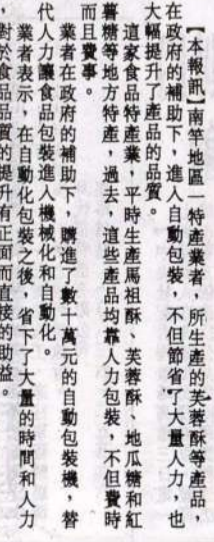 【本報訊】南竿地區一特產業者，所生產的芙蓉酥等產品，
在政府的補助下，進入自動包裝，不但節省了大量人力，也
大幅提升了產品的品質。
這家食品特產業，平時生產馬祖酥、芙蓉酥、地瓜糖和紅
薯糖等地方特產，過去，這些產品均靠人力包裝，不但費時
而且費事。
業者在政府的補助下，購進了數十萬元的自動包裝機，替
代人力讓食品包裝進入機械化和自動化。
業者表示，在自動化包裝之後，省下了大量的時間和人力
，對於食品品質的提升有正面而直接的助益。